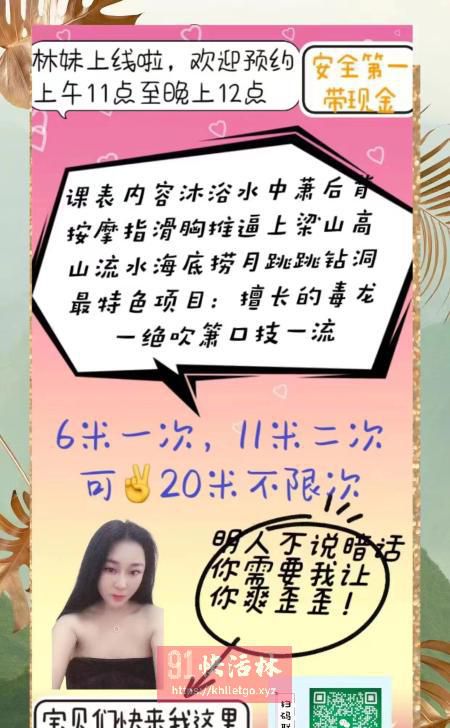 林妹上线啦，欢迎预约
上午11点至晚上12点
安全第一
带现金
课表内容沐浴水中萧后背
按摩指滑胸推逼上梁山高
山流水海底捞月跳跳钻洞
最特色项目：擅长的毒龙
一绝吹箫口技一流
6米一次，11米二次
可✌20米不限次
明人不说暗话
你需要我让
你爽歪歪！
91快活林
https://khlletgo.xyz
宝贝们快来我这里
扫码联